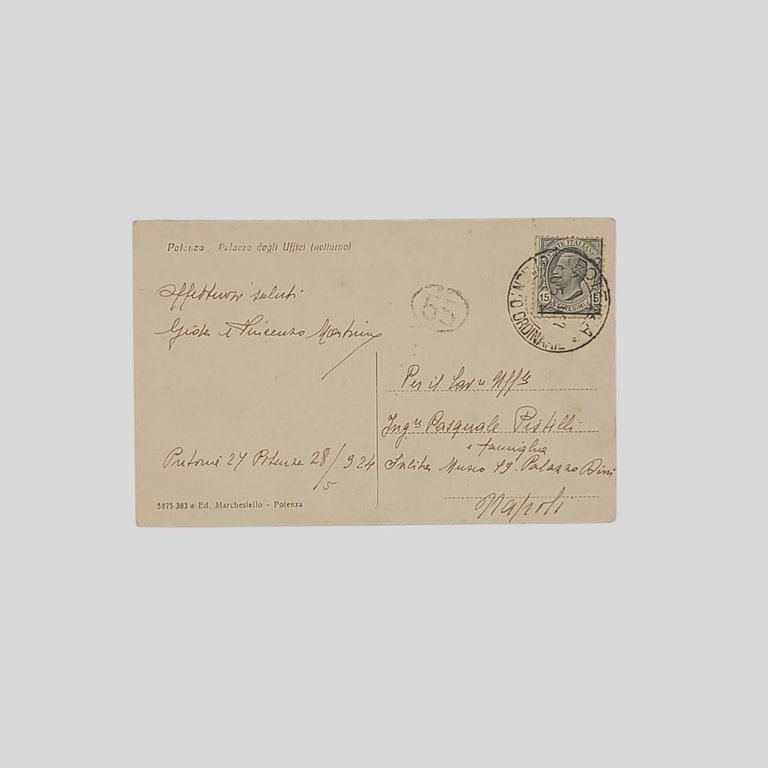 Potenza - Palazzo degli Uffici (notturno)
POSTE ITALIANE
15 15
CENTESIMI
ORDINARIE
55
Affettuosi saluti
e Vincenzo
Per il Cav re Uff le
Ing re Pasquale Pistilli
e famiglia
Museo 49. Palazzo
Napoli
Pretoria 27 Potenza 28/5 924
5875 383 a Ed. Marchesiello - Potenza